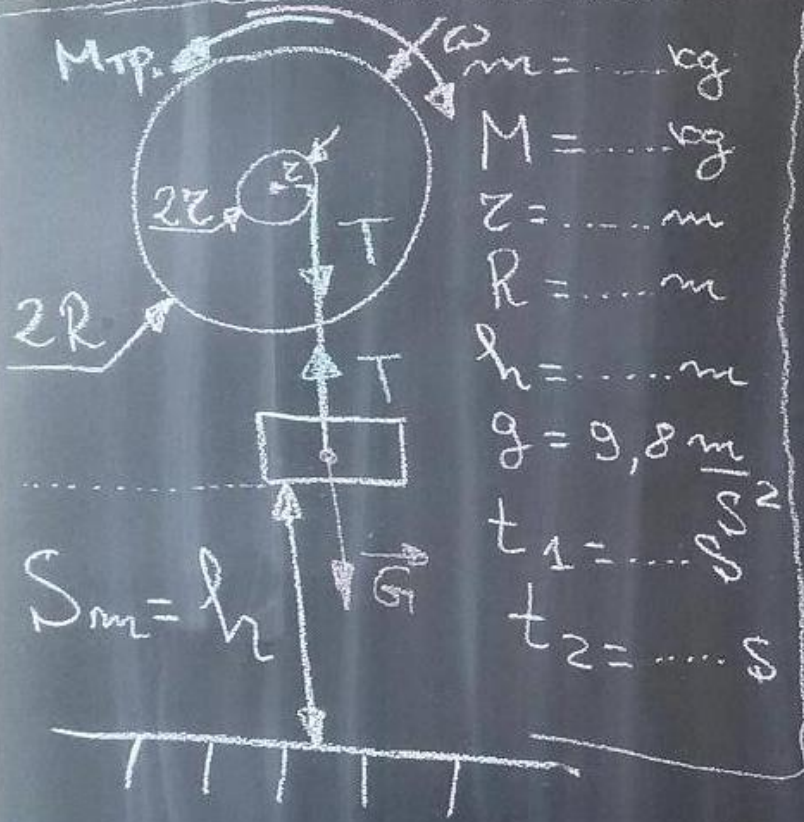 Mтр.
ω
2r
r
T
2R
T
G
Sm = h
m = ...... kg
M = ...... kg
r = ...... m
R = ...... m
h = ...... m
g = 9,8 m/s²
t1 = ..... s
t2 = ..... s